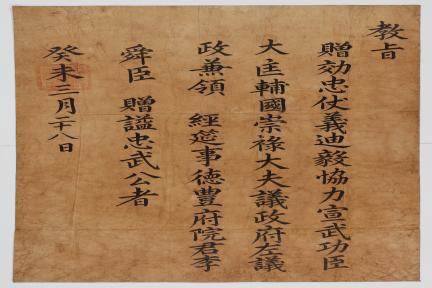 教旨
贈効忠仗義迪毅協力宣武功臣
大匡輔國崇祿大夫議政府左議
政兼領 經筵事德豊府院君李
舜臣 贈諡忠武公者
癸未三月二十八日